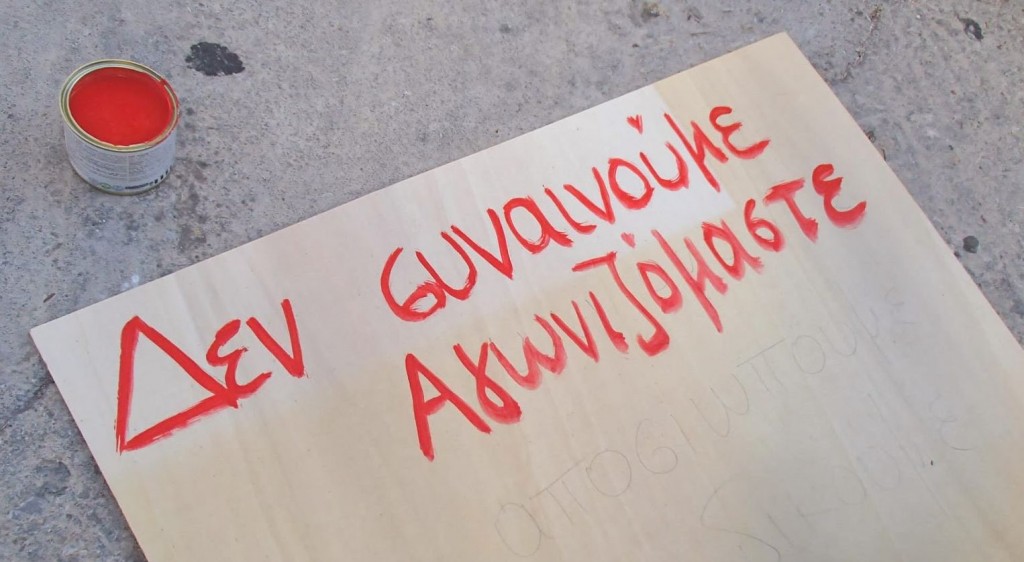 Δεν συναινούμε
Αγωνιζόμαστε
αποσιωπούμε